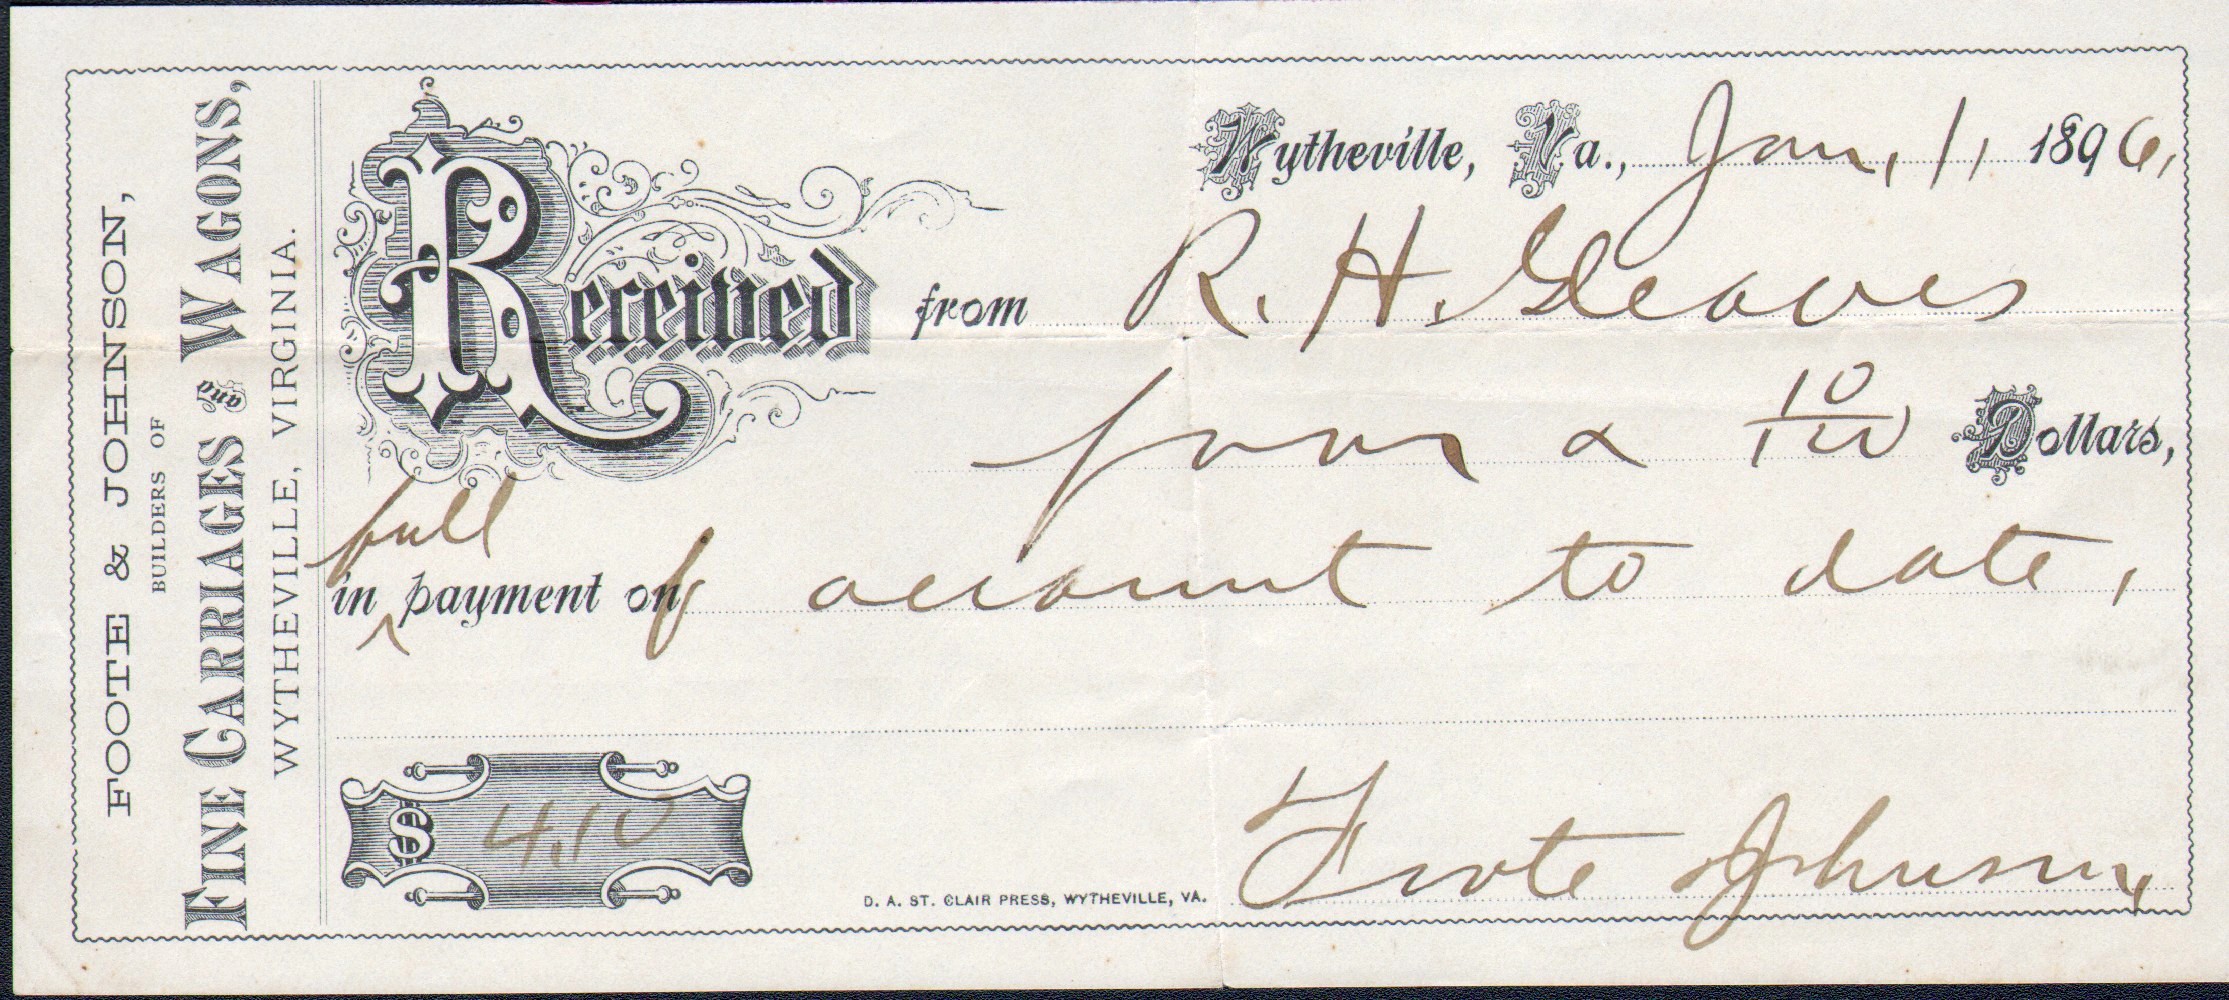 FOOTE & JOHNSON,
BUILDERS OF
FINE CARRIAGES and WAGONS,
WYTHEVILLE, VIRGINIA.
Wytheville, Va., Jan, 1, 1896,
Received from R. H. Gleaves
four & 10/100 Dollars,
full
in ^ payment of account to date,
$ 4.10
Foote Johnson,
D. A. ST. CLAIR PRESS, WYTHEVILLE, VA.